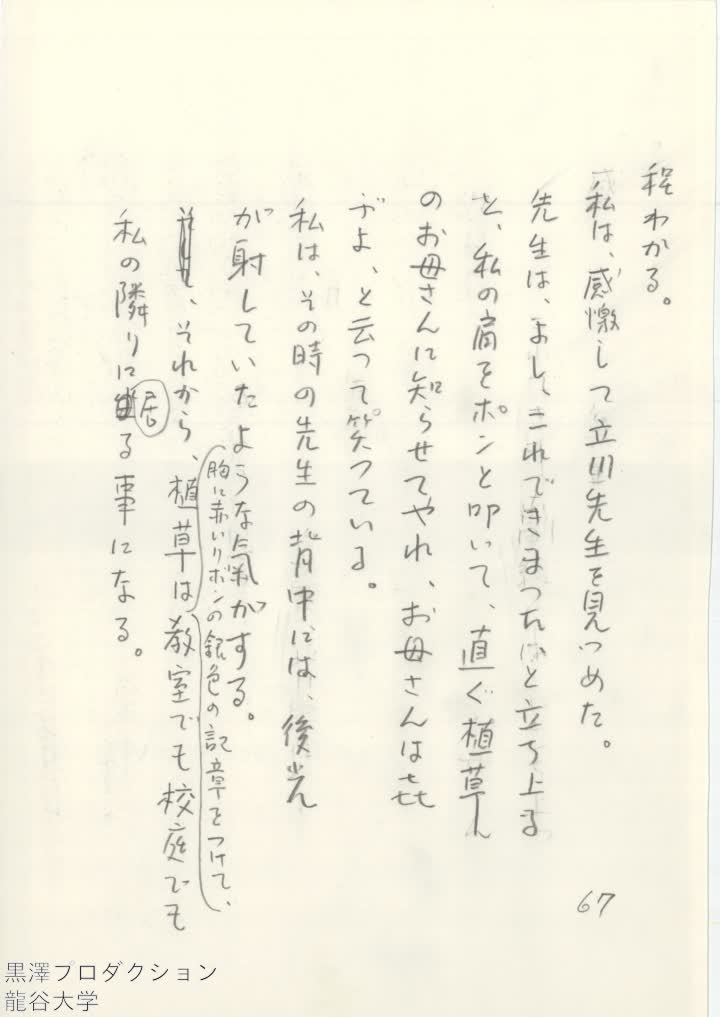 程わかる。
私は、感激して立川先生を見つめた。
先生は、よし、これできまつたと立ち上る
と、私の肩をポンと叩いて、直ぐ植草ん
のお母さんに知らせてやれ、お母さんは㐂
ぶよ、と云って笑つている。
私は、その時の先生の背中には、後光
が射していたような氣がする。
、それから、植草は、胸に赤いリボンの銀色の記章をつけて、教室でも校庭でも
私の隣りに居る事になる。
67
黒澤プロダクション
龍谷大学